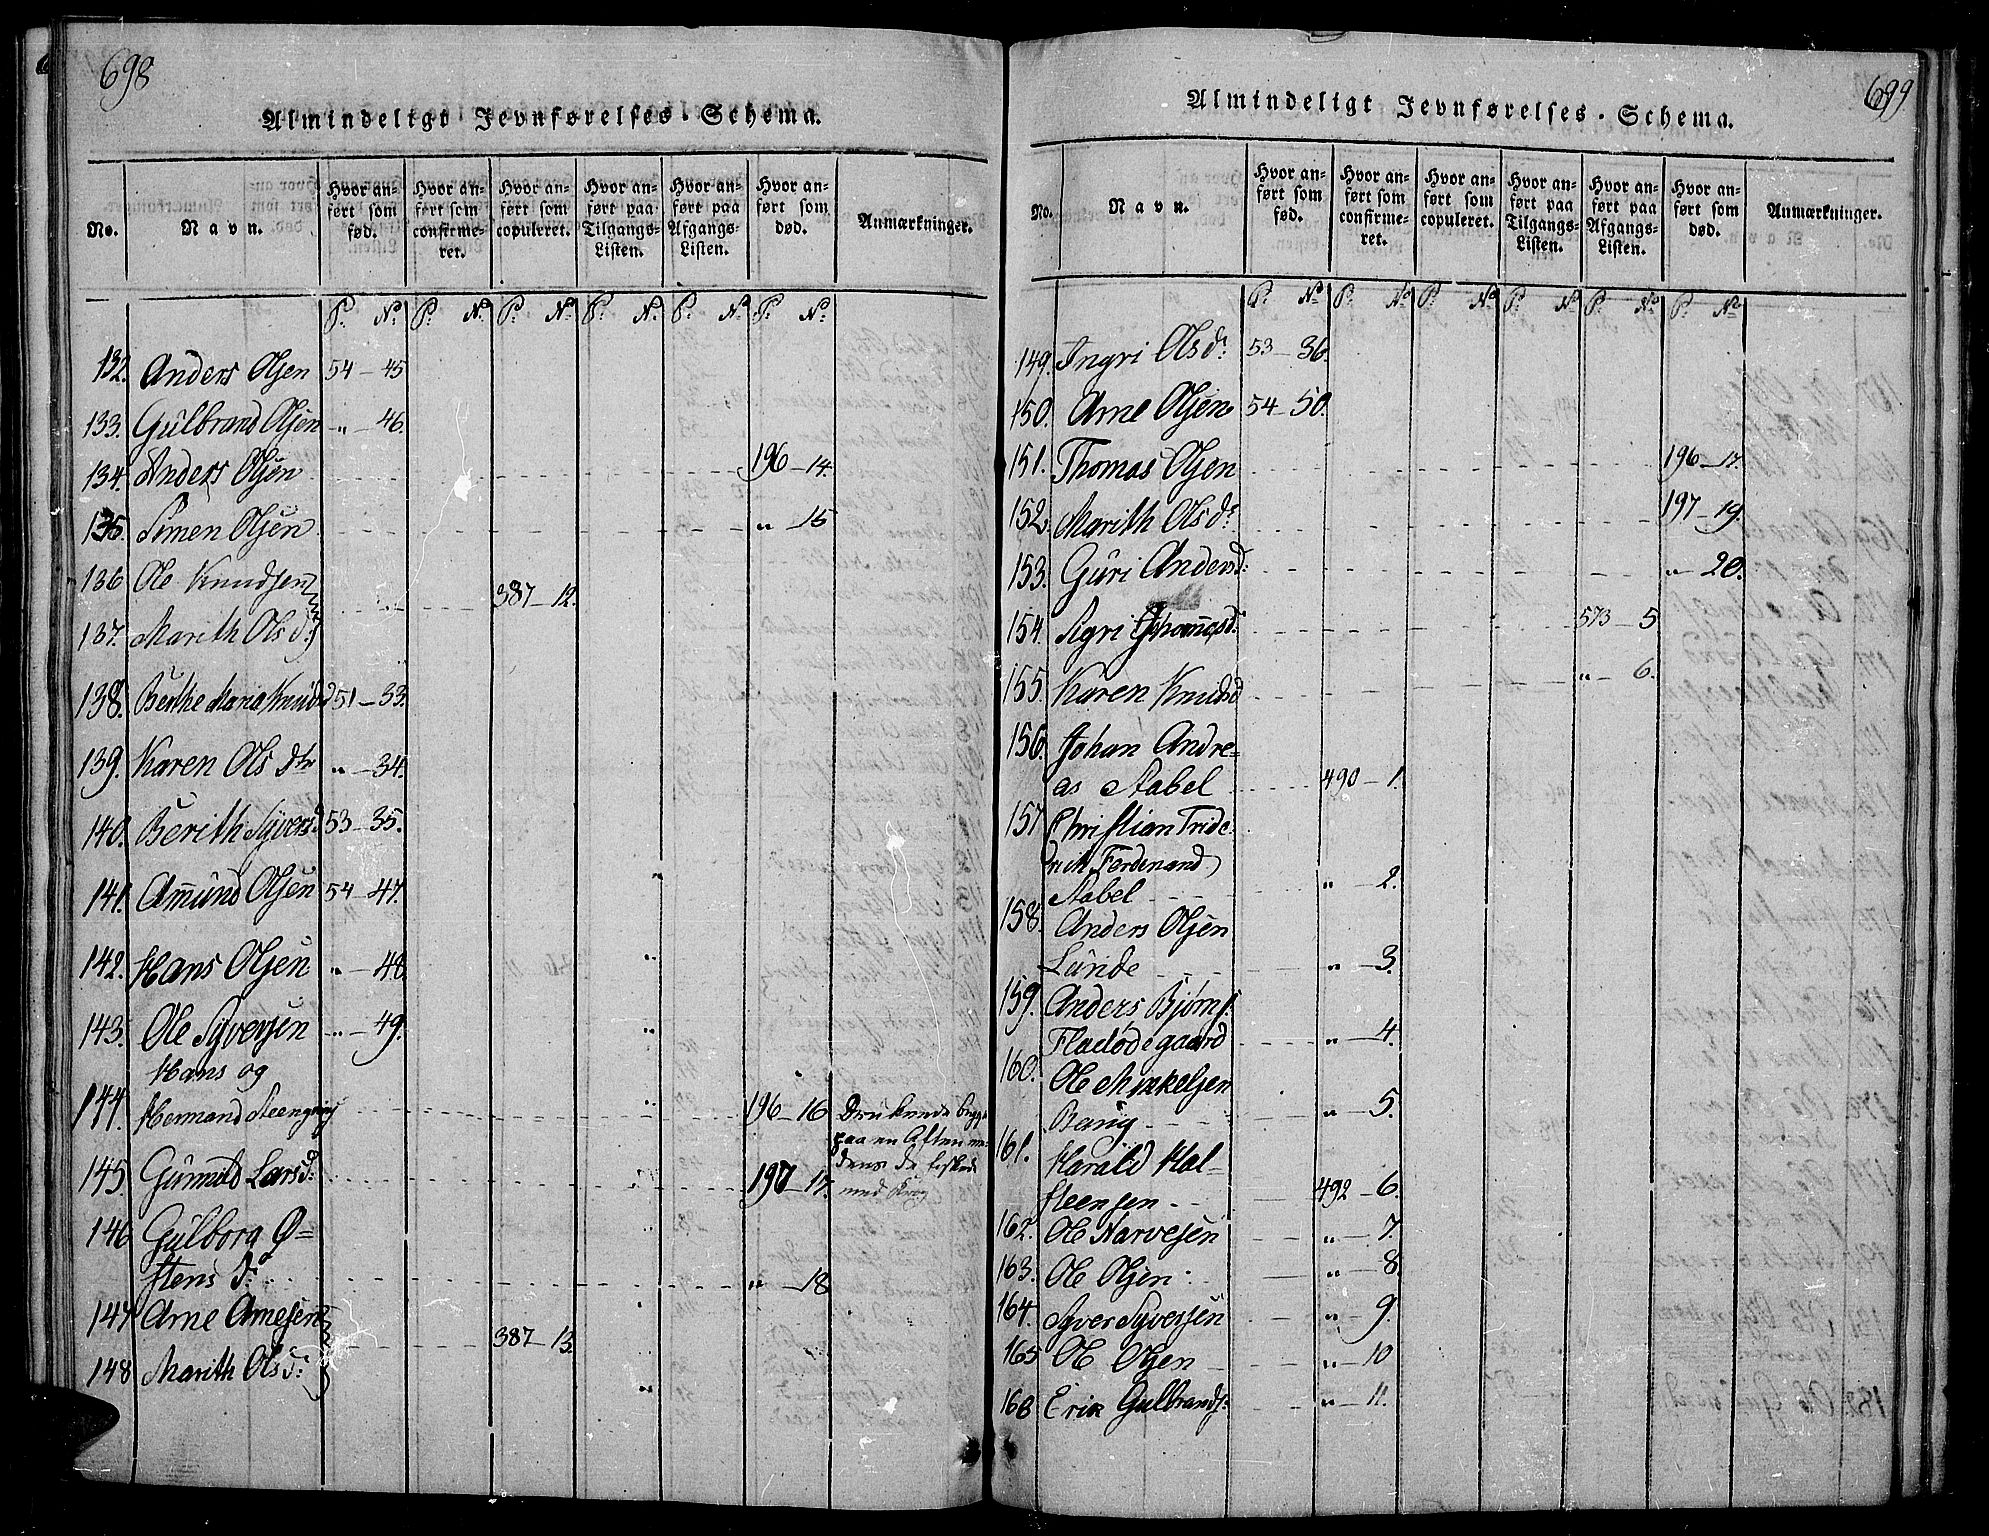 698
Almindeligt Jevnførelses-Schema.
No. Navn. Hvor anført som fød. Hvor anført som confirmeret. Hvor anført som copuleret. Hvor anført paa Tilgangs-Listen. Hvor anført paa Afgangs-Listen. Hvor anført som død. Anmærkninger.
P. No P. No P. No P. No P. No P. No
132. Anders Olsen 54 – 45
133. Gulbrand Olsen " – 46.
134. Anders Olsen 196 – 14
135 Simen Olsen " 15
136 Ole Knudsen
387 – 12.
137. Marith Olsd:
138. Berthe Maria Knudsd 51 – 33.
139. Karen Olsdtr " – 34.
140. Berith Syversd 53 – 35.
141. Amund Olsen 54 – 47.
142. Hans Olsen " – 48
143. Ole Syversen " – 49.
Hans og
144. Hermand Steengrims 196 – 16 Druknede begge
paa en Aften
dens de fiskede
145. Gunnild Larsd: 197 – 17. med Krog
146 Gulborg Ø=
stens d: " – 18
147 Arne Arnesen
387 – 13.
148 Marith Olsd:
699
Almindeligt Jevnførelses-Schema.
No. Navn. Hvor anført som fød. Hvor anført som confirmeret. Hvor anført som copuleret. Hvor anført paa Tilgangs-Listen. Hvor anført paa Afgangs-Listen. Hvor anført som død. Anmærkninger.
P. No P. No P. No P. No P. No P. No
149. Ingri Olsd: 53 – 36.
150. Arne Olsen 54 – 50.
151. Thomas Olsen 196 – 17.
152. Marith Olsd: 197 – 19.
153. Guri Andersd: " 20.
154 Sigri Thomasd: 573 – 5
155. Karen Knudsd " – 6.
156. Johan Andre=
as Stabel 490 – 1.
157 Christian Fride-
rich Ferdenand
Stabel " – 2.
158. Anders Olsen
Lunde " – 3.
159. Anders Bjørns.
Fladødegaard " – 4.
160. Ole Mikkelsen
Bang " – 5.
161. Harald Hal-
steensen 492 – 6.
162. Ole Narvesen " – 7.
163. Ole Olsen " – 8.
164. Syver Syversen " – 9.
165 Ole Olsen " – 10
168 Erik Gulbrands: " – 11.